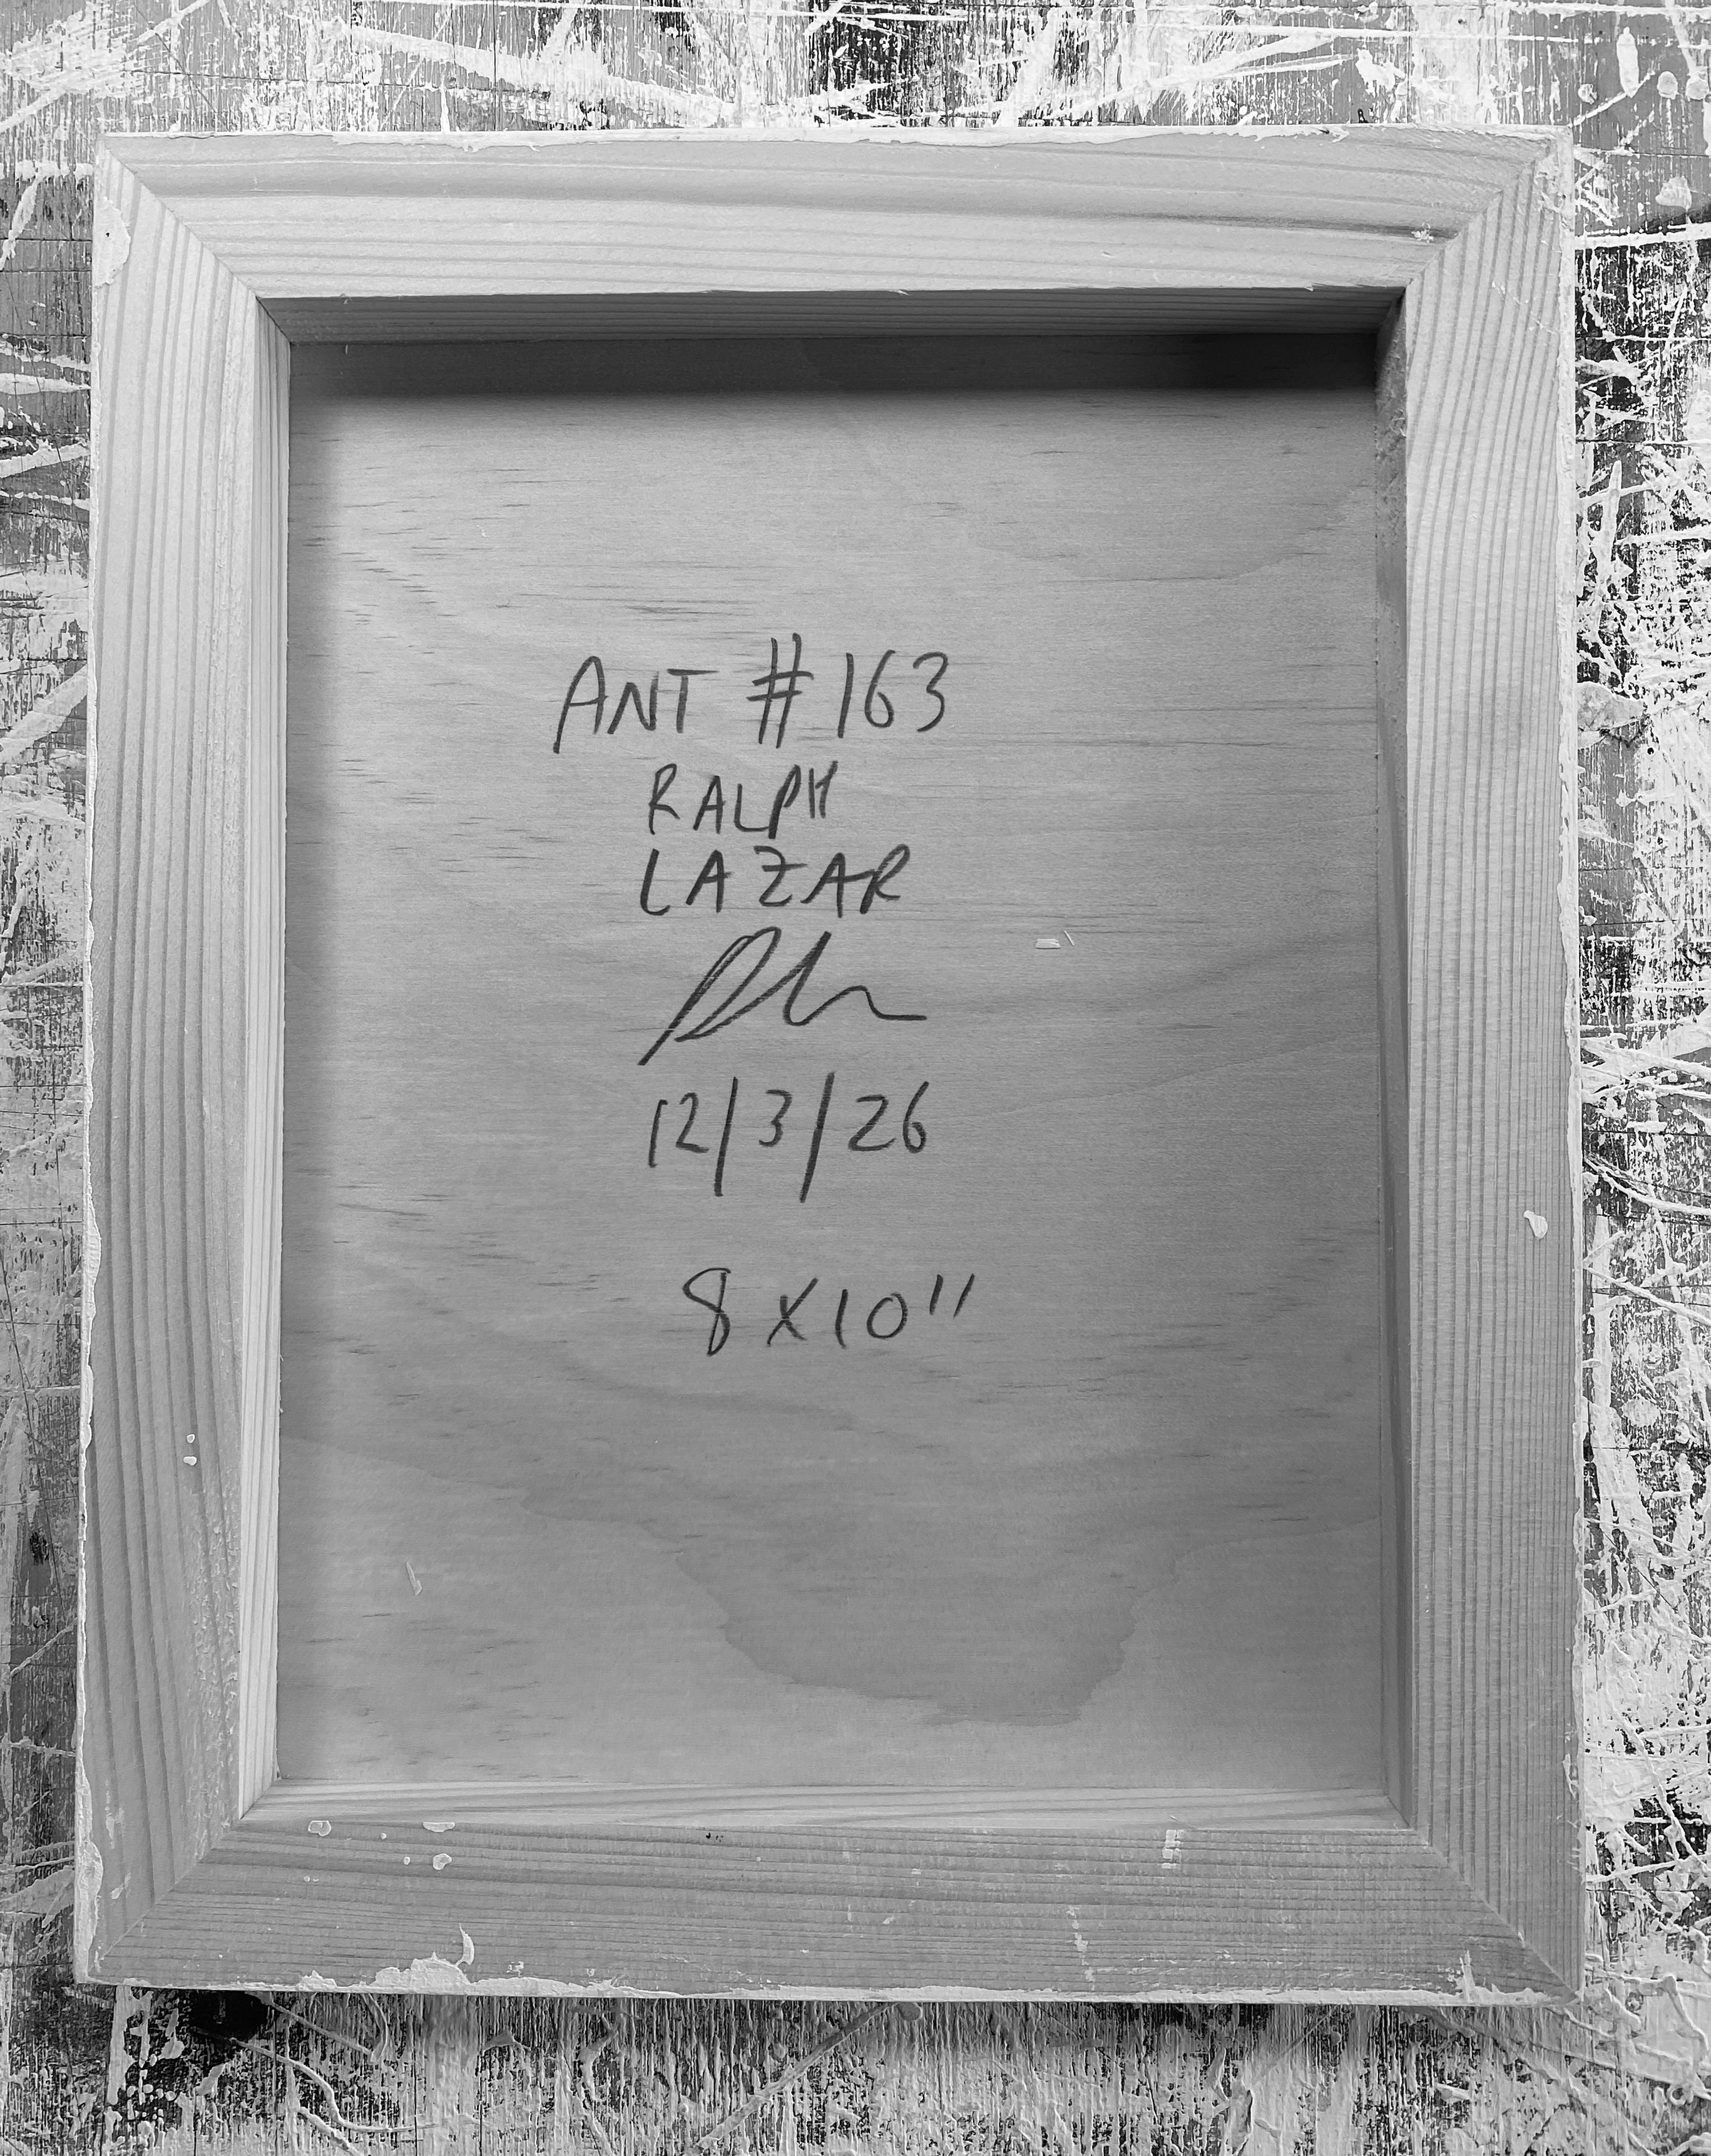 ANT #163
RALPH
LAZAR
12/3/26
8 x 10"